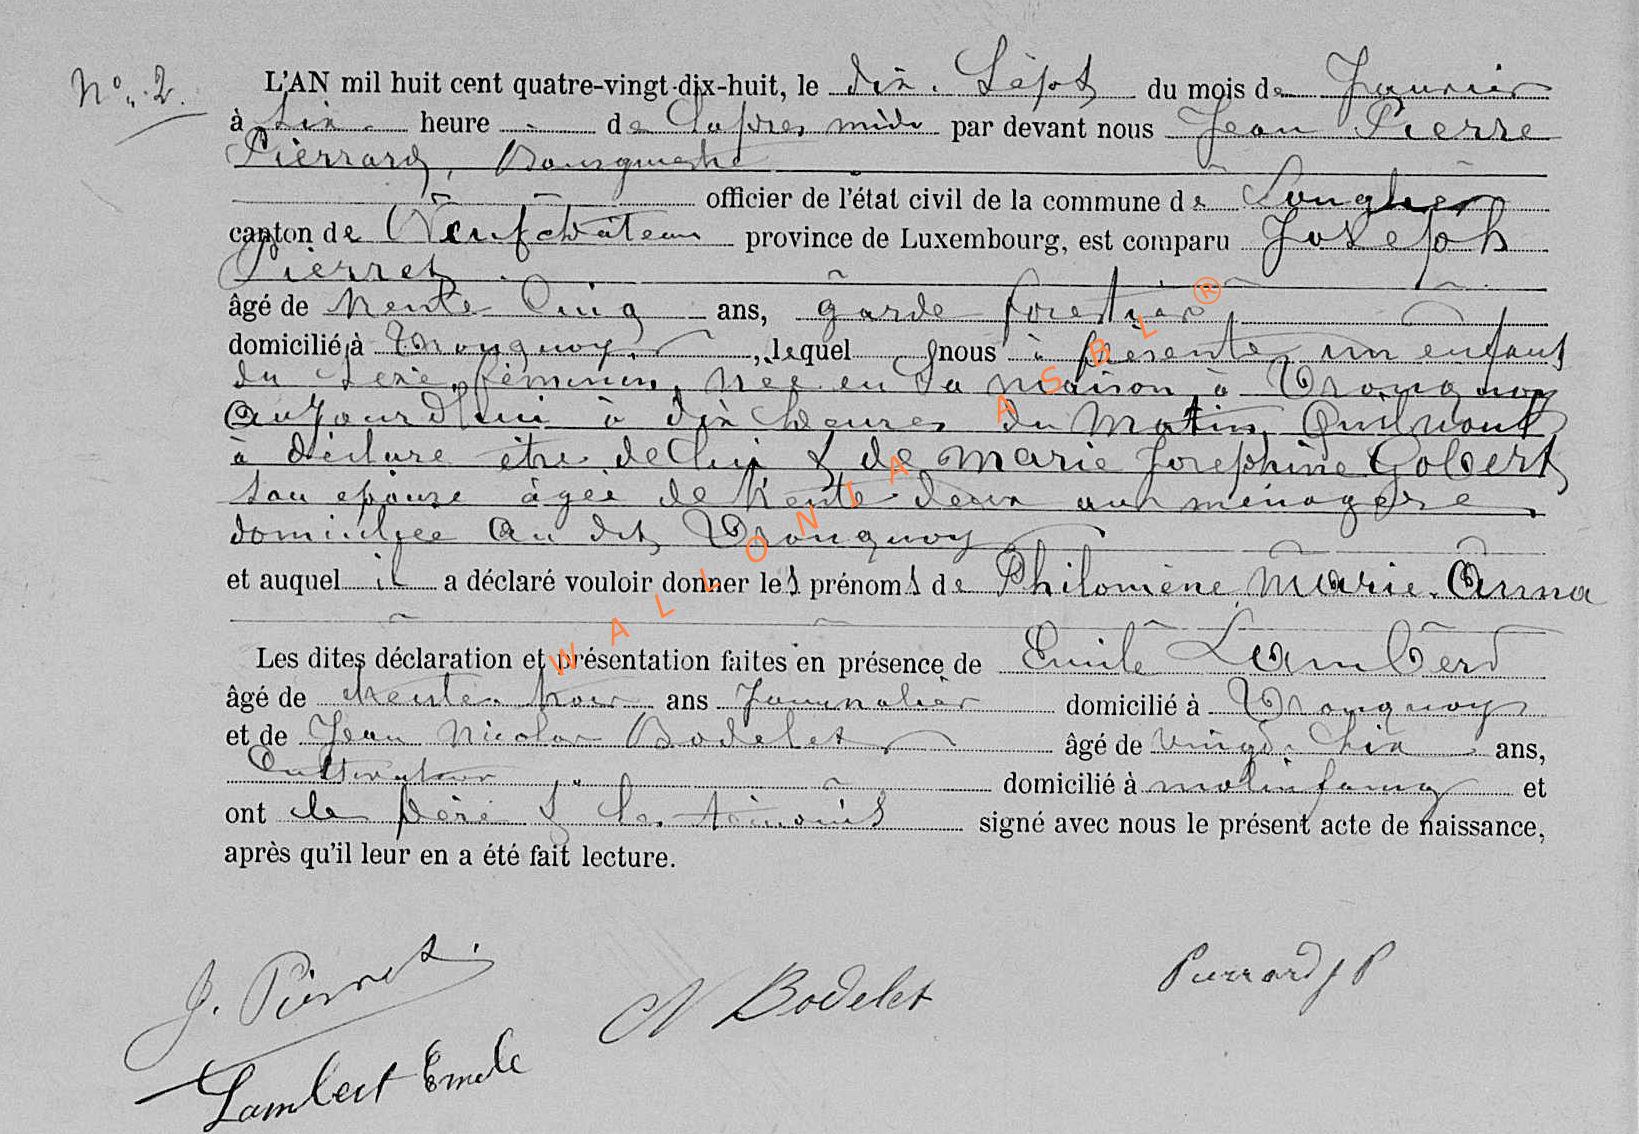 N° 2. L'AN mil huit cent quatre-vingt-dix-huit, le dix-Sept du mois de Janvier
à six heure de l'apres midi par devant nous Jean Pierre
Pierrard, Bourgmestre
officier de l'état civil de la commune de Longlier
canton de Neufchâteau province de Luxembourg, est comparu Joseph
Pierret
âgé de trente Cinq ans, garde forestier
domicilié à Tronquoy, lequel nous à présenté un enfant
du sexe féminin, née en sa maison à Tronquoy
aujourd'hui à dix heures du matin, qu'il nous
à déclaré être de lui & de Marie Josephine Gobert
son epouse âgée de trente-deux ans ménagère
domiciliée au dit Tronquoy
et auquel il a déclaré vouloir donner les prénoms de Philomène, Marie-Anna
Les dites déclaration et présentation faites en présence de Emile Lambert
âgé de trente-trois ans Journalier domicilié à Tronquoy
et de Jean Nicolas Bodelet âgé de vingt-six ans,
Cultivateur domicilié à Molinfaing et
ont le père & les témoins signé avec nous le présent acte de naissance,
après qu'il leur en a été fait lecture.
J. Pierret
N Bodelet
Pierrard J P
Lambert Emile
WALLONIA ASBL ®